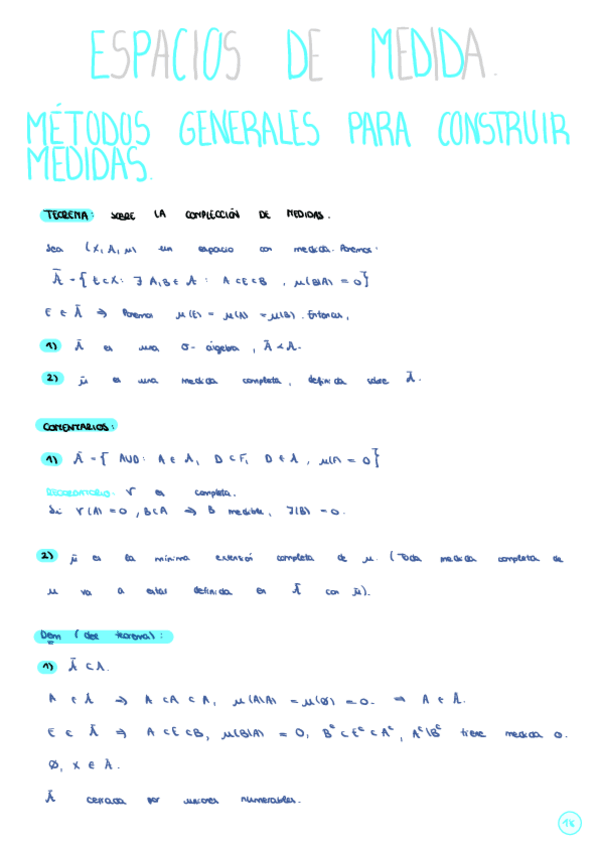 ESPACIOS DE MEDIDA.
MÉTODOS GENERALES PARA CONSTRUIR
MEDIDAS.
TEOREMA: SOBRE LA COMPLECCIÓN DE MEDIDAS.
Sea (X, A, μ) un espacio con medida. Ponemos:
Ā = { E⊂X: ∃ A,B ∈ A : A⊂E⊂B , μ(B\A) = 0}
E ∈ Ā ⇒ Ponemos μ(E) = μ(A) = μ(B). Entonces,
1) Ā es una σ-álgebra,
2) μ̄ es una medida completa, definida sobre Ā.
COMENTARIOS:
1) Ā = { AUD: A ∈ A, D ⊂ F, D ∈ A, μ(F) = 0}
RECORDATORIO: es completa.
Si V(A) = 0, B⊂A ⇒ B medible, (B) = 0.
2) μ̄ es la mínima extensión completa de μ. (Toda medida completa de
μ va a estar definida en Ā con μ̄).
Dem (del teorema):
1) Ā ⊂ A.
A ∈ Ā ⇒ A ⊂ A ⊂ A, μ(A\A) = μ(∅) = 0. ⇒ A ∈ Ā.
E ∈ Ā ⇒ A ⊂ E ⊂ B, μ(B\A) = 0, Bᶜ ⊂ Eᶜ ⊂ Aᶜ, Aᶜ\Bᶜ tiene medida 0.
∅, X ∈ Ā.
Ā cerrada por uniones numerables.